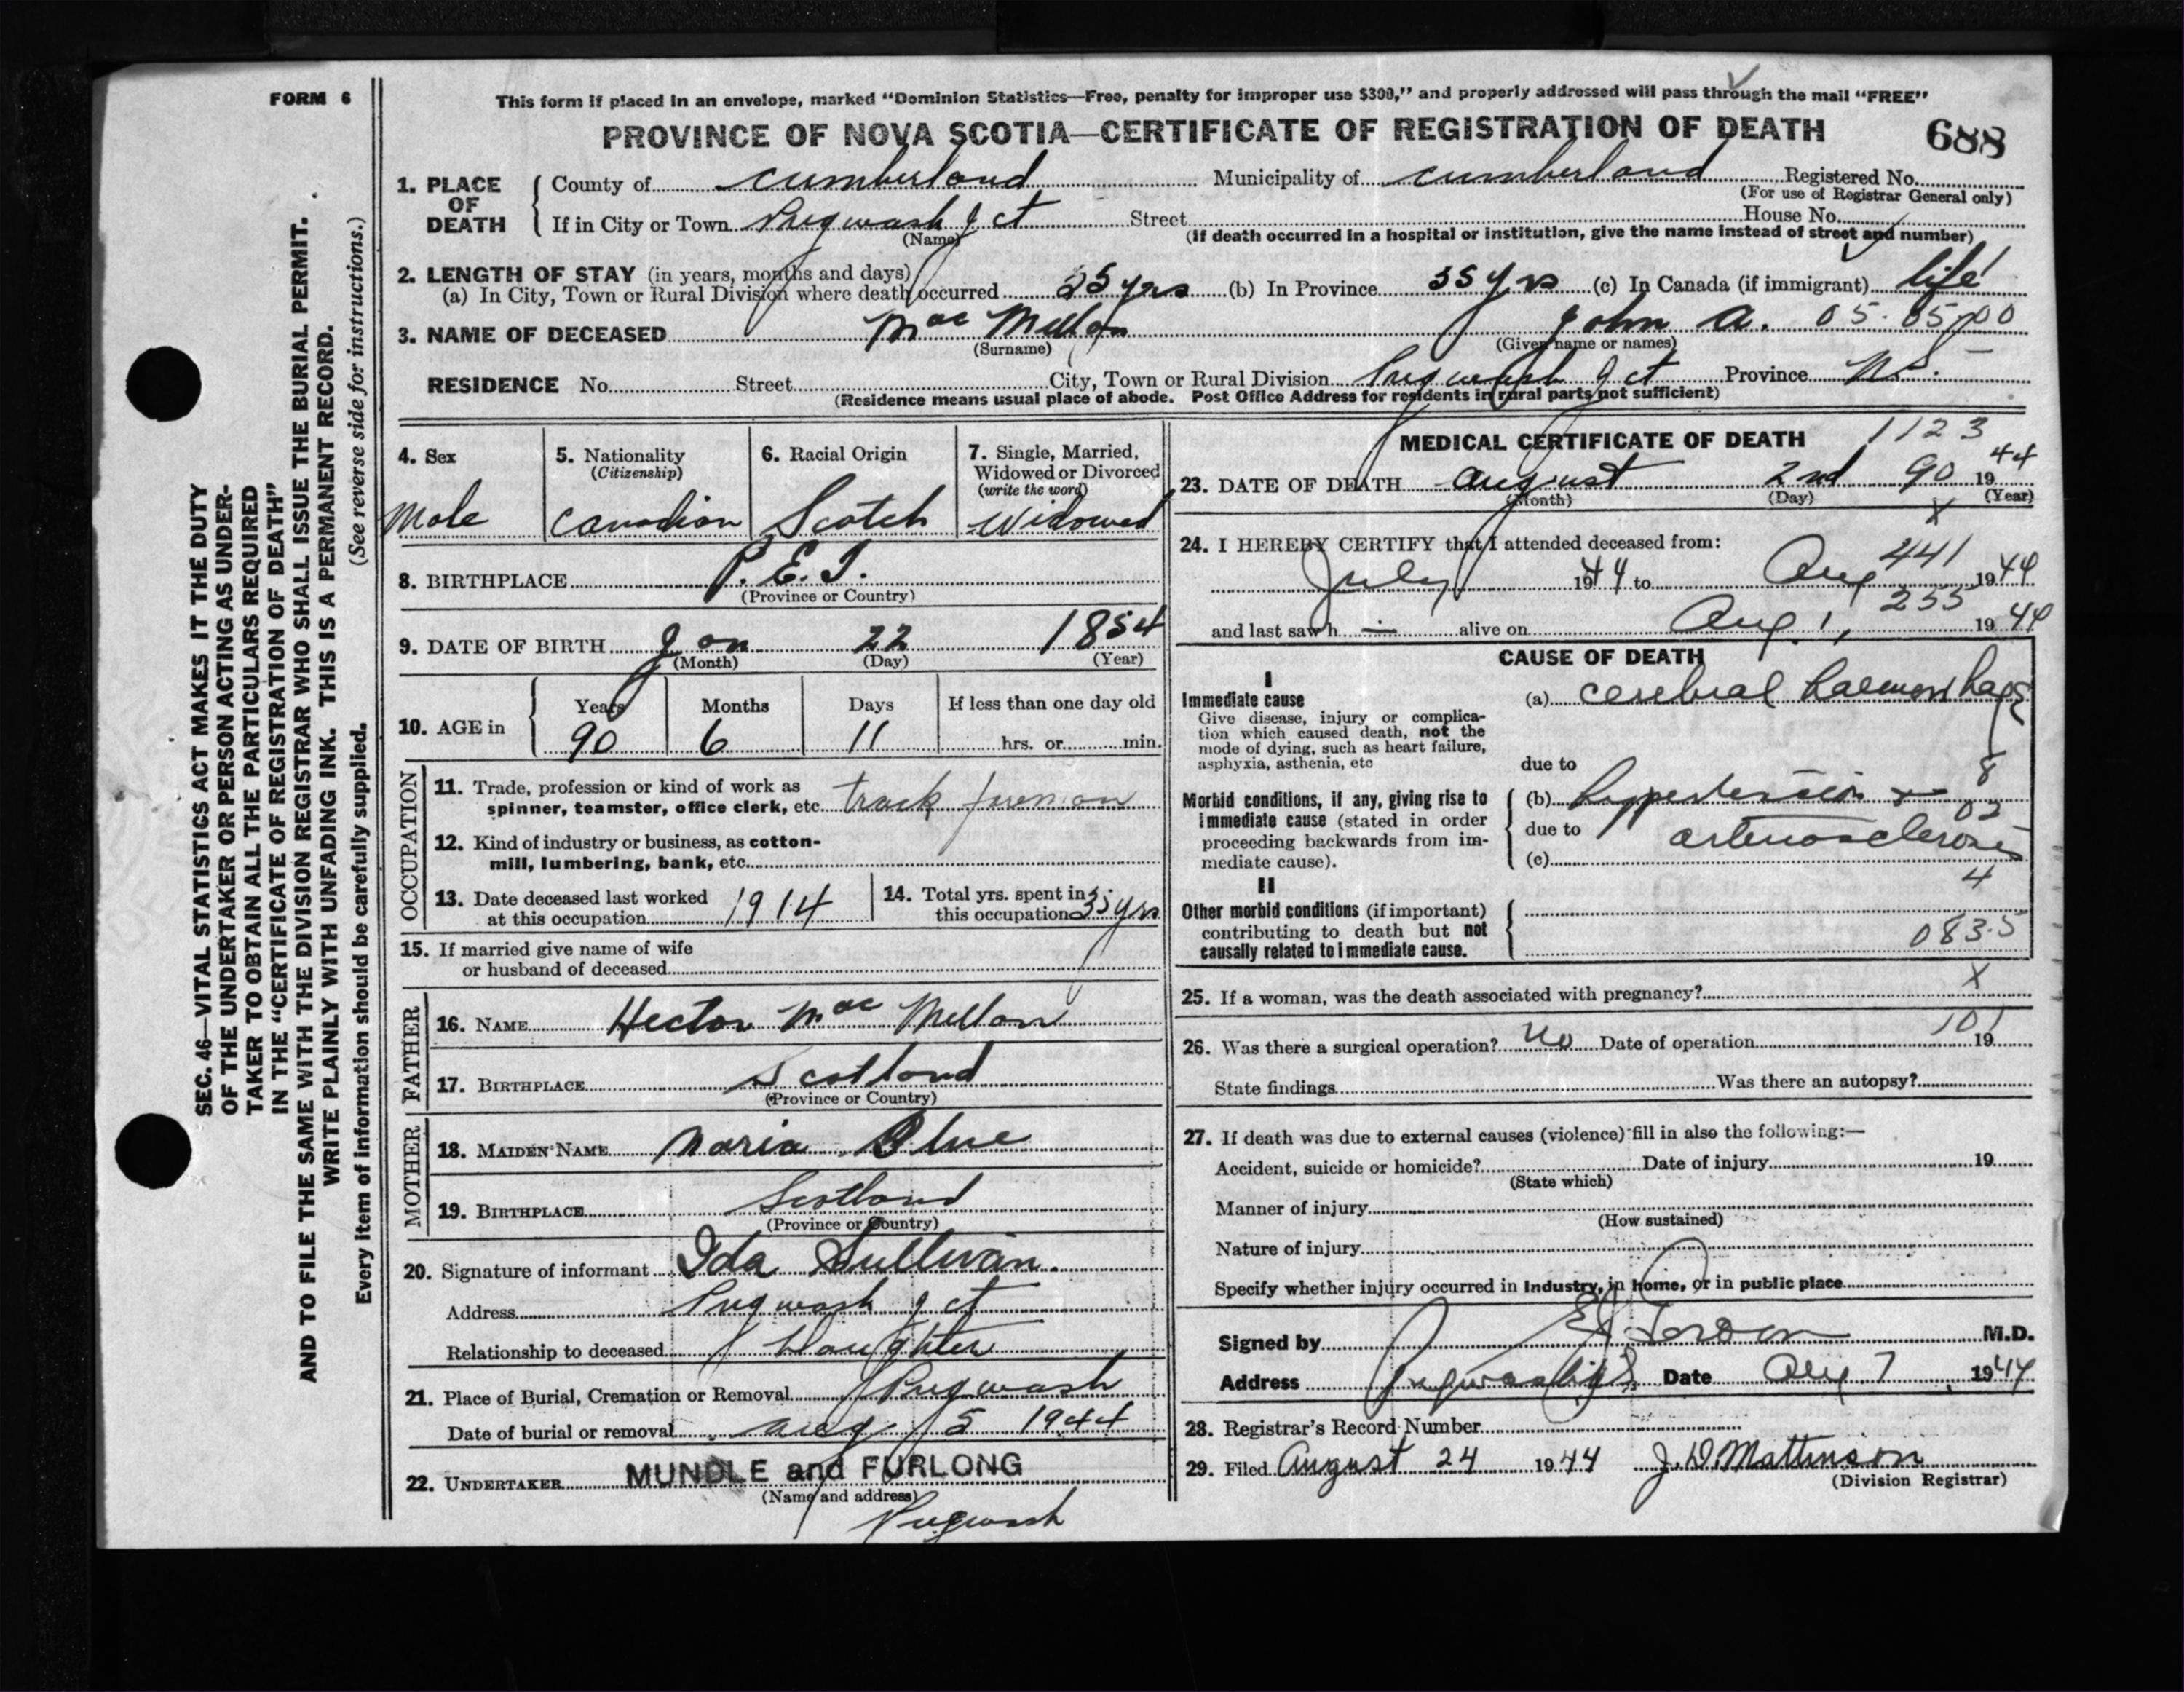 FORM 6
This form if placed in an envelope, marked “Dominion Statistics—Free, penalty for improper use $300,” and properly addressed will pass through the mail “FREE”
PROVINCE OF NOVA SCOTIA—CERTIFICATE OF REGISTRATION OF DEATH 688
1. PLACE OF DEATH
County of Cumberland Municipality of Cumberland Registered No.
(For use of Registrar General only)
If in City or Town Pugwash Jct Street House No.
(Name) (If death occurred in a hospital or institution, give the name instead of street and number)
2. LENGTH OF STAY (in years, months and days)
(a) In City, Town or Rural Division where death occurred 25 yrs (b) In Province 55 yrs (c) In Canada (if immigrant) life
3. NAME OF DECEASED Mac Millan John A. 05-05-00
(Surname) (Given name or names)
RESIDENCE No. Street City, Town or Rural Division Pugwash Jct Province N.S.
(Residence means usual place of abode. Post Office Address for residents in rural parts not sufficient)
4. Sex
Male
5. Nationality
(Citizenship)
Canadian
6. Racial Origin
Scotch
7. Single, Married,
Widowed or Divorced
(write the word)
Widowed
8. BIRTHPLACE P.E.I.
(Province or Country)
9. DATE OF BIRTH Jan 22 1854
(Month) (Day) (Year)
10. AGE in
Years Months Days If less than one day old
90 6 11 hrs. or min.
OCCUPATION
11. Trade, profession or kind of work as
spinner, teamster, office clerk, etc. track foreman
12. Kind of industry or business, as cotton-
mill, lumbering, bank, etc.
13. Date deceased last worked
at this occupation 1914
14. Total yrs. spent in
this occupation 35 yrs
15. If married give name of wife
or husband of deceased
FATHER
16. NAME Hector Mac Millan
17. BIRTHPLACE Scotland
(Province or Country)
MOTHER
18. MAIDEN NAME Maria Blue
19. BIRTHPLACE Scotland
(Province or Country)
20. Signature of informant Ida Sullivan.
Address Pugwash Jct
Relationship to deceased Daughter
21. Place of Burial, Cremation or Removal Pugwash
Date of burial or removal Aug 5 1944
22. UNDERTAKER MUNDLE and FURLONG
(Name and address)
Pugwash
MEDICAL CERTIFICATE OF DEATH 1123
23. DATE OF DEATH August 2nd 90 1944
(Month) (Day) (Year)
X
24. I HEREBY CERTIFY that I attended deceased from:
441
July 1944 to Aug 1944
255
and last saw h — alive on Aug. 1, 1944
CAUSE OF DEATH
I
Immediate cause
Give disease, injury or complica-
tion which caused death, not the
mode of dying, such as heart failure,
asphyxia, asthenia, etc
(a) cerebral haemorrhage
due to 8
Morbid conditions, if any, giving rise to
immediate cause (stated in order
proceeding backwards from im-
mediate cause).
(b) hypertension + 02
due to arteriosclerosis
(c)
4
II
Other morbid conditions (if important)
contributing to death but not
causally related to immediate cause.
083.5
X
25. If a woman, was the death associated with pregnancy?
101
26. Was there a surgical operation? No Date of operation 19
State findings Was there an autopsy?
27. If death was due to external causes (violence) fill in also the following:—
Accident, suicide or homicide? Date of injury 19
(State which)
Manner of injury
(How sustained)
Nature of injury
Specify whether injury occurred in Industry, in home, or in public place
Signed by M.D.
Address Pugwash N.S. Date Aug 7, 1944
28. Registrar's Record Number
29. Filed August 24 1944 J. D. Mattinson
(Division Registrar)
SEC. 46—VITAL STATISTICS ACT MAKES IT THE DUTY
OF THE UNDERTAKER OR PERSON ACTING AS UNDER-
TAKER TO OBTAIN ALL THE PARTICULARS REQUIRED
IN THE “CERTIFICATE OF REGISTRATION OF DEATH”
AND TO FILE THE SAME WITH THE DIVISION REGISTRAR WHO SHALL ISSUE THE BURIAL PERMIT.
WRITE PLAINLY WITH UNFADING INK. THIS IS A PERMANENT RECORD.
Every item of information should be carefully supplied. (See reverse side for instructions.)